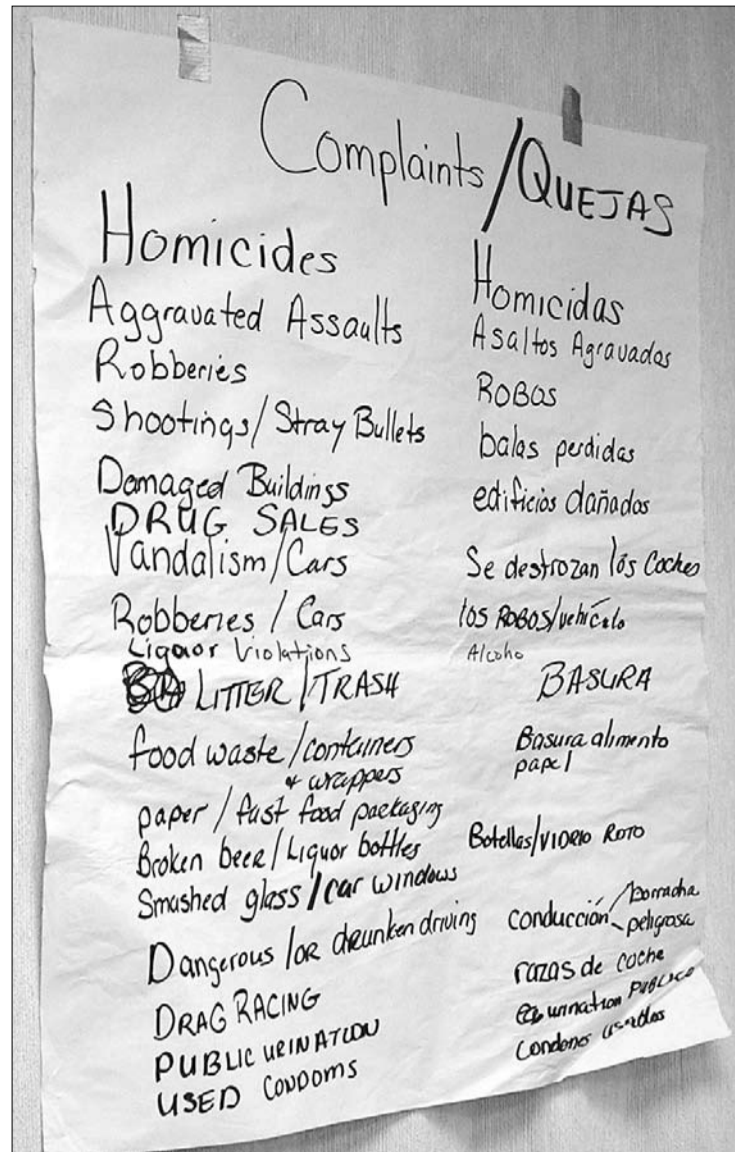 Complaints/QUEJAS
Homicides
Aggravated Assaults
Robberies
Shootings/Stray Bullets
Damaged Buildings
DRUG SALES
Vandalism/Cars
Robberies/Cars
Liquor Violations
LITTER/TRASH
food waste/containers
& wrappers
paper/fast food packaging
Broken beer/Liquor bottles
Smashed glass/car windows
Dangerous/or drunken driving
DRAG RACING
PUBLIC URINATION
USED CONDOMS
Homicidas
Asaltos Agravadas
ROBOS
balas perdidas
edificios dañados
Se destrozan los Coches
los ROBOS/vehículo
Alcoho
BASURA
Basura alimento
papel
Botellas/VIDRIO ROTO
conducción borracha
peligrosa
razas de coche
urination PUBLICO
Condones usados